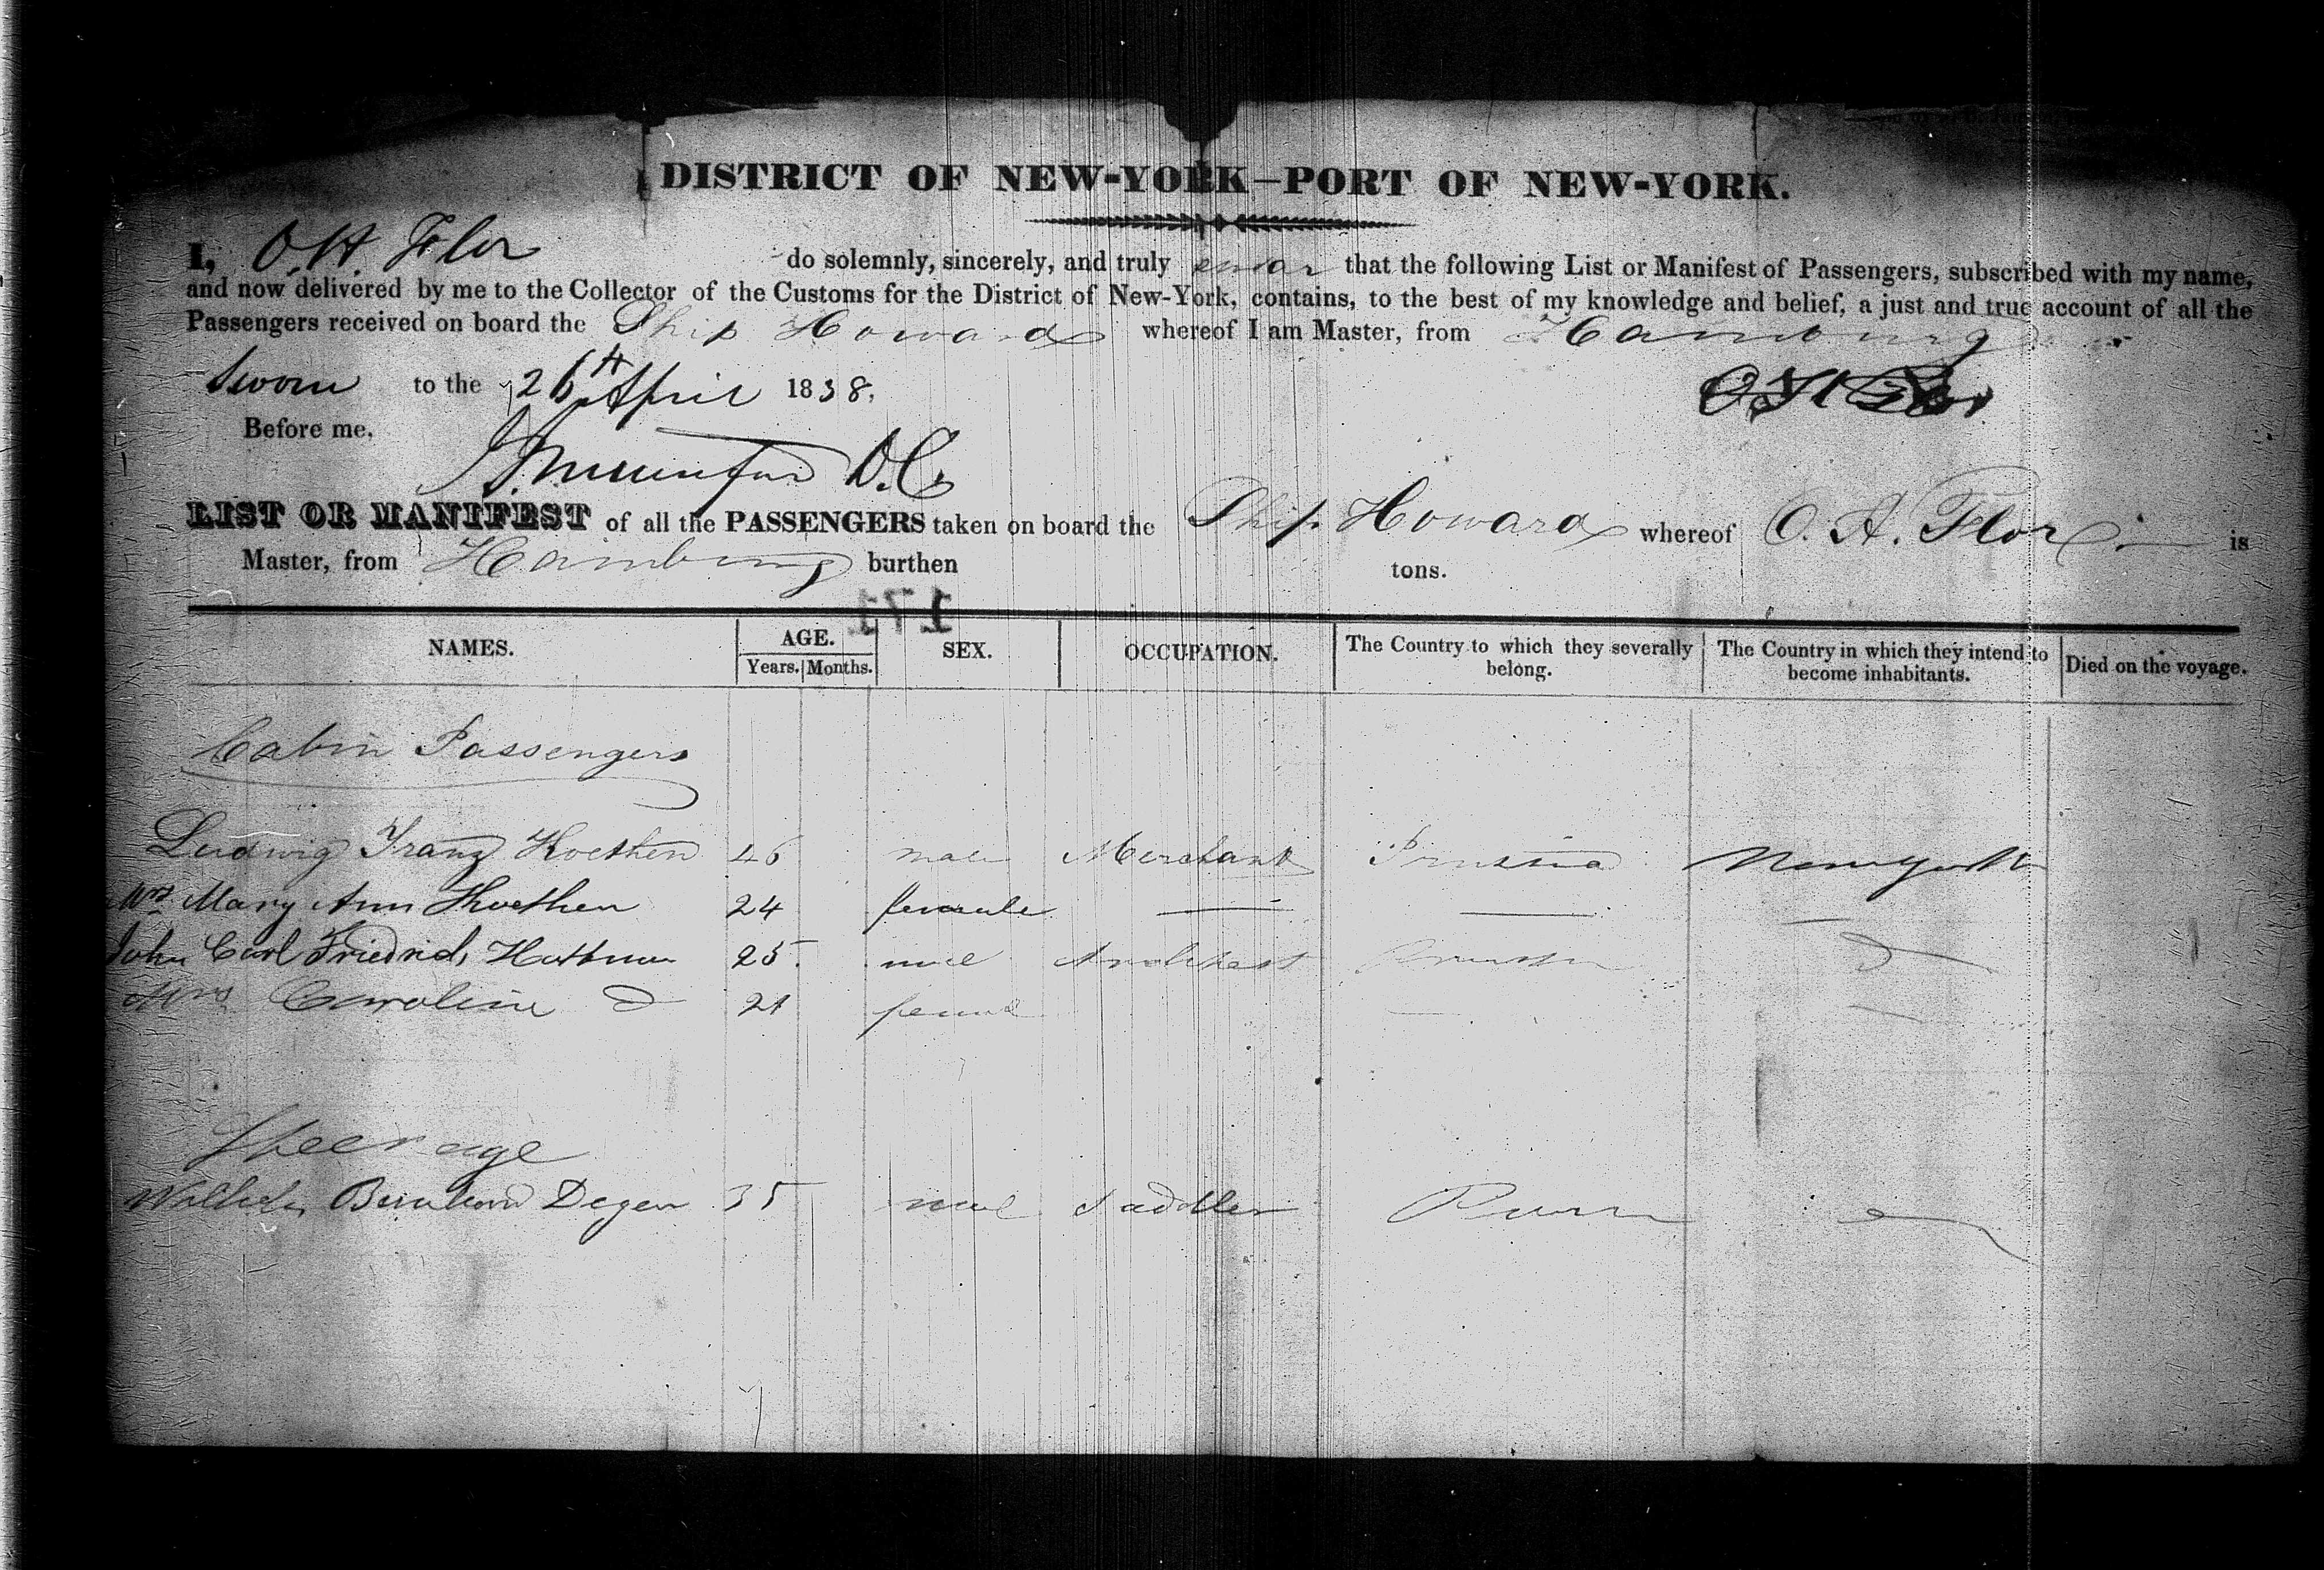 DISTRICT OF NEW-YORK—PORT OF NEW-YORK.
I, O. H. Flor do solemnly, sincerely, and truly swear that the following List or Manifest of Passengers, subscribed with my name,
and now delivered by me to the Collector of the Customs for the District of New-York, contains, to the best of my knowledge and belief, a just and true account of all the
Passengers received on board the Ship Howard whereof I am Master, from Hamburg
Sworn to the 26th April 1838.
Before me.
D.C.
LIST OR MANIFEST of all the PASSENGERS taken on board the Ship Howard whereof O. A. Flor is
Master, from Hamburg burthen tons.
171
NAMES. AGE. SEX. OCCUPATION. The Country to which they severally belong. The Country in which they intend to become inhabitants. Died on the voyage.
Years. Months.
Cabin Passengers
Ludwig Franz Koethen 46 male Merchant Prussia New York
Mrs Mary Ann Koethen 24 female
John Carl Friedrich 25 male Architect Prussia
Mrs Caroline 21 female
Steerage
Wilhelm Degen 35 male Saddler